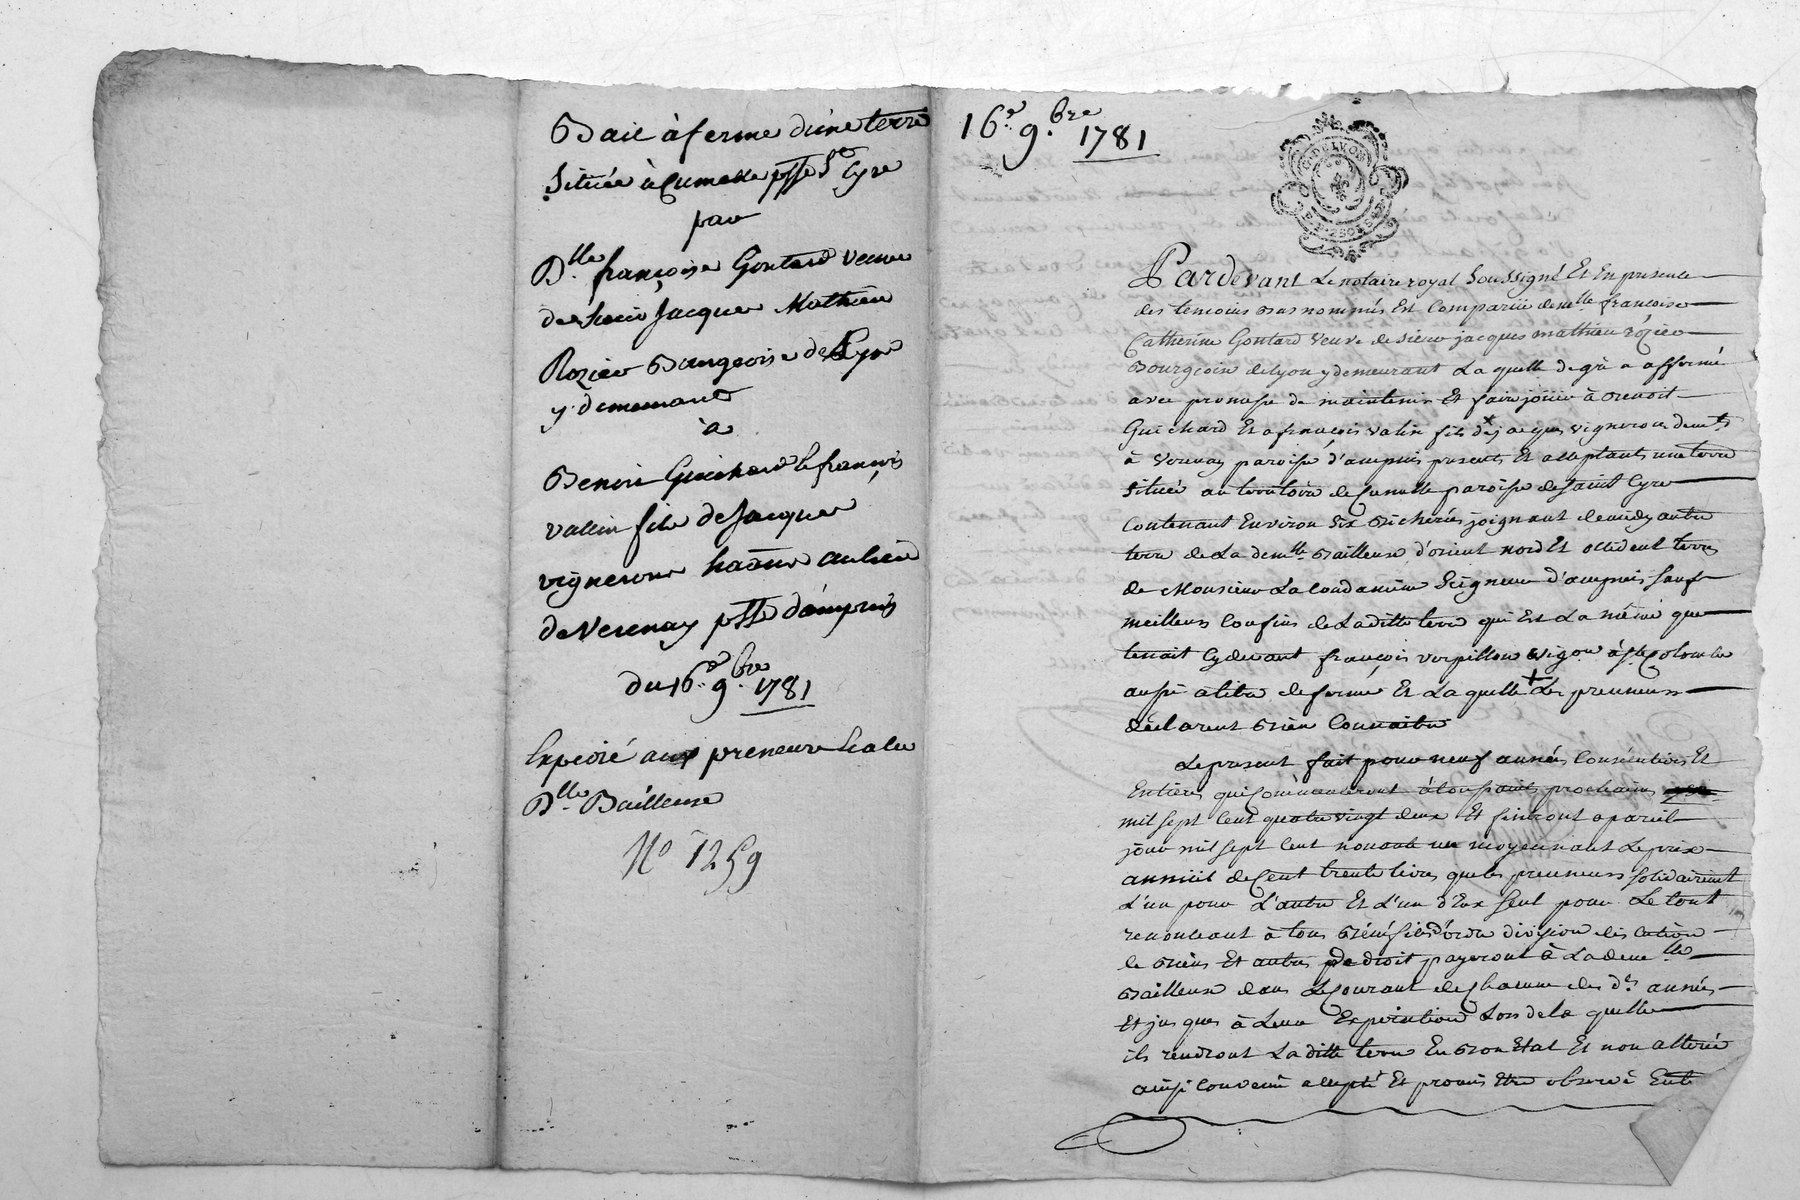 Bail à ferme d'une terre
Située à Cumelle psse St Cyre
par
Dlle françoise Gontard veuve
de sieur Jacques Mathieu
Rozier Bourgeoise de Lyon
y demeurant
à
Benoit Guichard & françois
vallin fils de Jacques
vignerons haōns au lieu
de Verenay psse d'ampuis
du 16e 9.bre 1781
Expedié aux preneurs & a la
Dlle Bailleuse
No 1259
16e 9.bre 1781
G. DE LYON
Pardevant Le notaire royal Soussigné Et En presence
des temoins Bas nommés Est Comparüe demlle françoise
Catherine Gontard Veuve de sieur jacques mathieu rozier
Bourgeois de lyon y demeurant La quelle de gré a affermé
avec promesse de maintenir Et faire joüir à Benoit
Guichard Et a françois valin fils de jacques vignerons demts
à Verenay paroisse d'ampuis presents Et acceptants une terre
Située au territoire de Cumelle paroisse de Saint Cyre
Contenant Environ Six Bicherées joignant de midy autre
terre de La demlle Bailleuse d'orient nord Et occident terres
de Monsieur La Condamine Seigneur d'ampuis Sauf
meilleurs Confins de Laditte terre qui Est La même que
tenait Cy devant françois vorpillon vigon à ste Colombe
aussi a titre de ferme Et La quelle Les preneurs
déclarent Bien Connaitre
Le present fait pour neuf années Consécutives Et
Entieres qui Comenceront à la toussaints prochaine
mil sept Cent quatre vingt deux Et finiront a pareil
jour mil sept Cent nonante un moyennant Le prix
annüel de Cent trente livres que les preneurs solidairement
L'un pour L'autre Et L'un d'Eux Seul pour Le tout
renonceant à tous Bénéfices d'ordre division discution
de Biens Et autres de droit payeront à La demlle
Bailleuse dans Le Courant de Chacune des ds années
Et jusques à Leur Expiration Lors de la quelle
ils rendront Laditte terre En Bon Etat Et non altérée
ainsi Convenu accepté Et promis Etre observé Entre